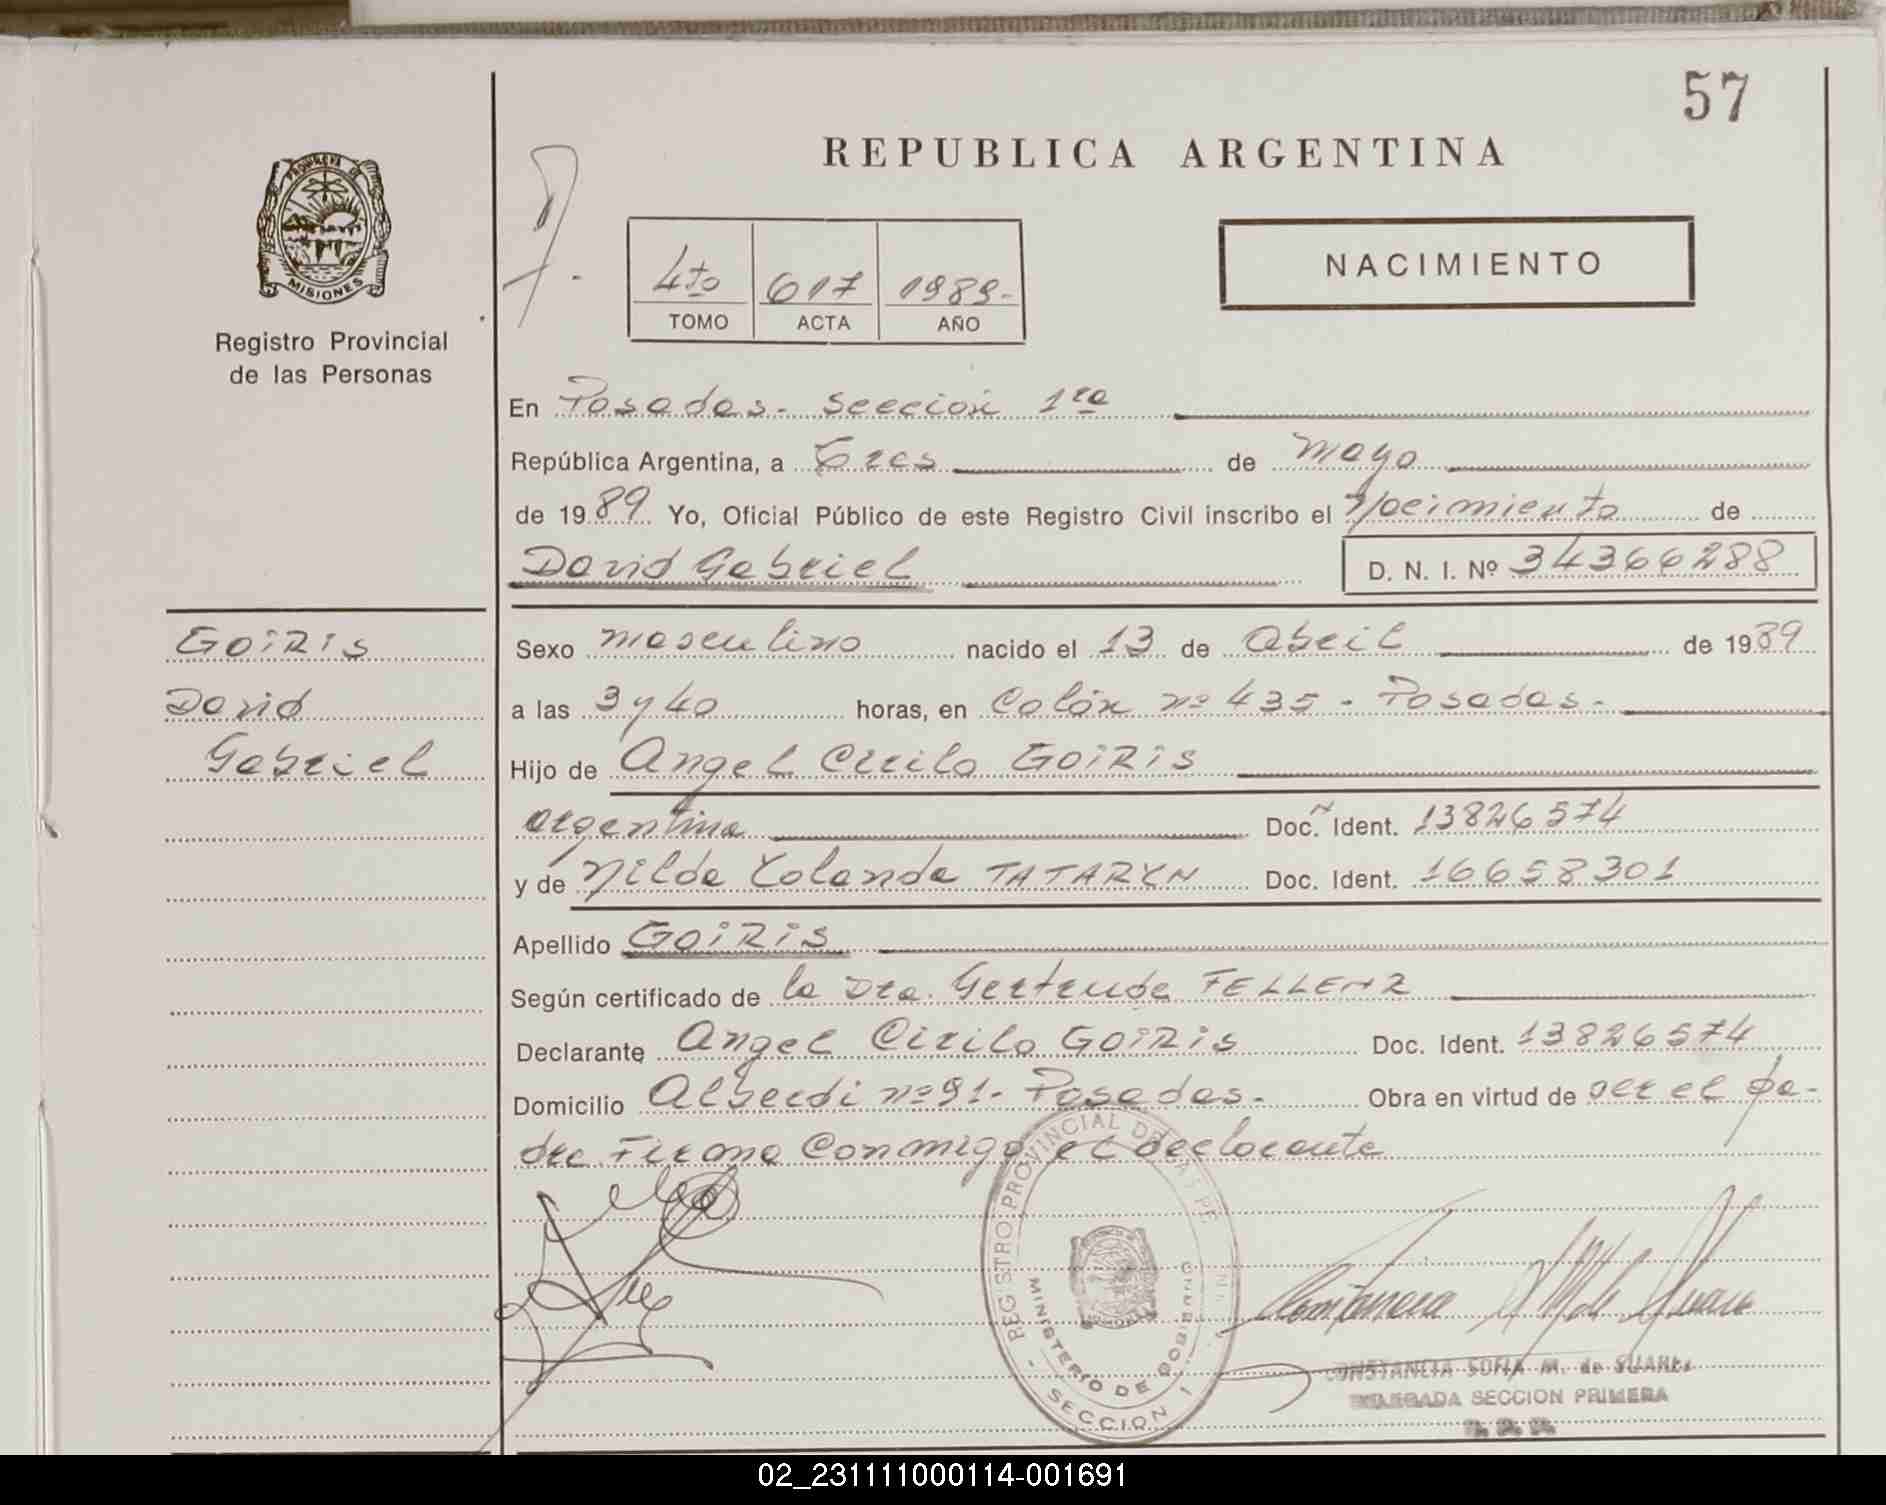 57
REPUBLICA ARGENTINA
PROVINCIA DE MISIONES
Registro Provincial
de las Personas
4to 617 1989.-
TOMO ACTA AÑO
NACIMIENTO
En Posadas. Sección 1ra
República Argentina, a Tres de Mayo
de 1989 Yo, Oficial Público de este Registro Civil inscribo el Nacimiento de
David Gabriel D. N. I. Nº 34366288
GOIRIS
David
Gabriel
Sexo masculino nacido el 13 de Abril de 1989
a las 3 y 40 horas, en Colón nº 435 - Posadas.-
Hijo de Angel Cirilo GOIRIS
argentina Doc. Ident. 13826574
y de Nilda Yolanda TATARYN Doc. Ident. 16658301
Apellido GOIRIS
Según certificado de la Dra. Gertrude FELLENZ
Declarante Angel Cirilo GOIRIS Doc. Ident. 13826574
Domicilio Alberdi nº 91.- Posadas.- Obra en virtud de ser el pa-
dre. Firma Conmigo el declarante
REGISTRO PROVINCIAL DE LAS PE
MINISTERIO DE GOBIERNO
SECCION 1
CONSTANCIA SOFIA M. de SUAREZ
DELEGADA SECCION PRIMERA
02_231111000114-001691